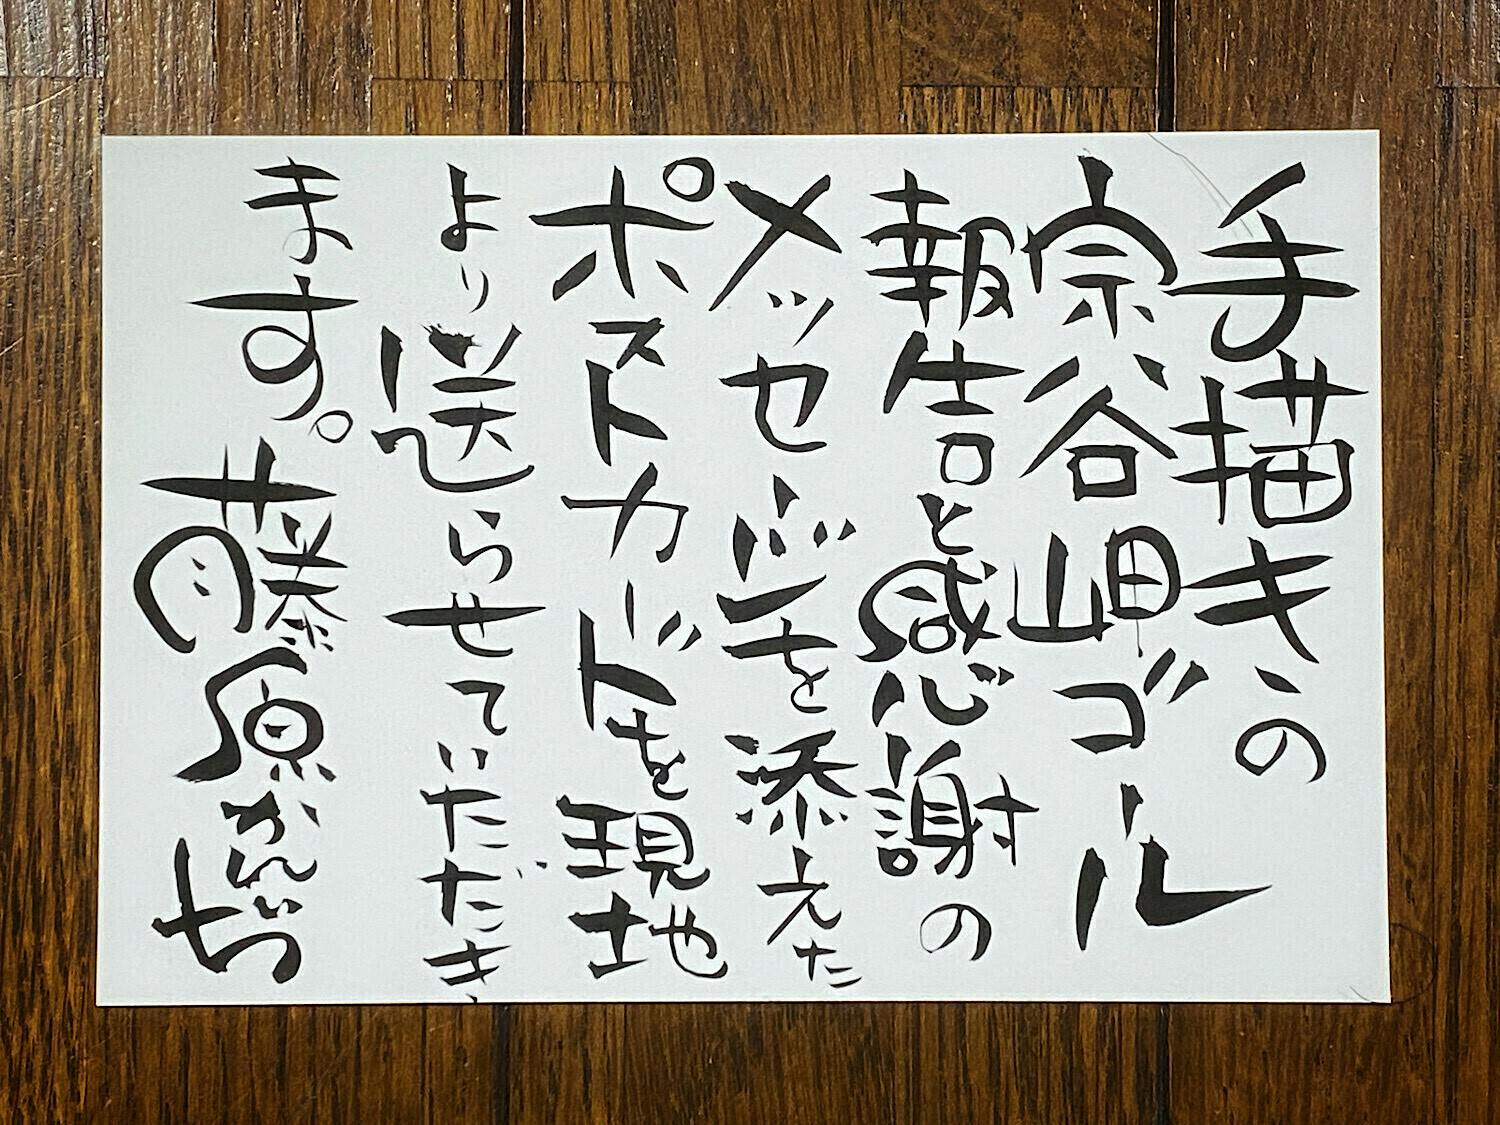 手描きの
宗谷岬ゴール
報告と感謝の
メッセージを添えた
ポストカードを現地
より送らせていただき
ます。藤原かんいち